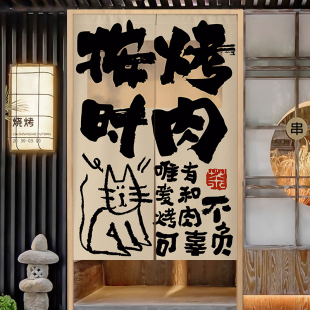 按时
烤肉
唯有
爱和
烤肉不
可辜负
烧烤
串